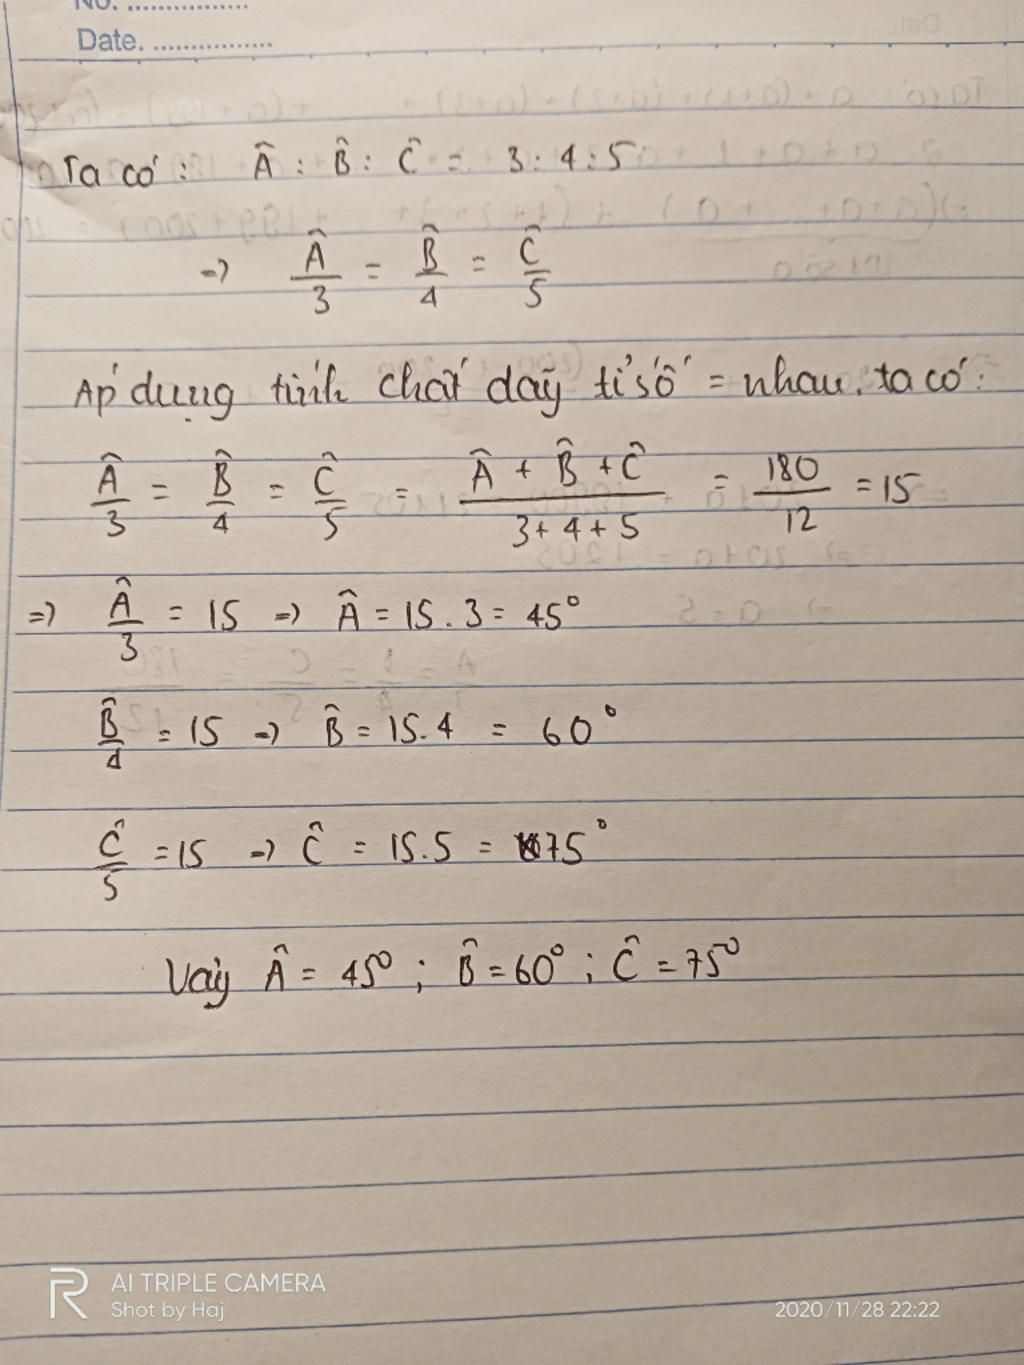 No. ................
Date. ................
Ta có: Â : B̂ : Ĉ = 3 : 4 : 5
=> Â/3 = B̂/4 = Ĉ/5
Áp dụng tính chất dãy tỉ số = nhau, ta có:
Â/3 = B̂/4 = Ĉ/5 = (Â + B̂ + Ĉ)/(3 + 4 + 5) = 180/12 = 15
=> Â/3 = 15 => Â = 15 . 3 = 45°
B̂/4 = 15 => B̂ = 15.4 = 60°
Ĉ/5 = 15 => Ĉ = 15.5 = 75°
Vậy Â = 45° ; B̂ = 60° ; Ĉ = 75°
AI TRIPLE CAMERA
Shot by Haj
2020/11/28 22:22